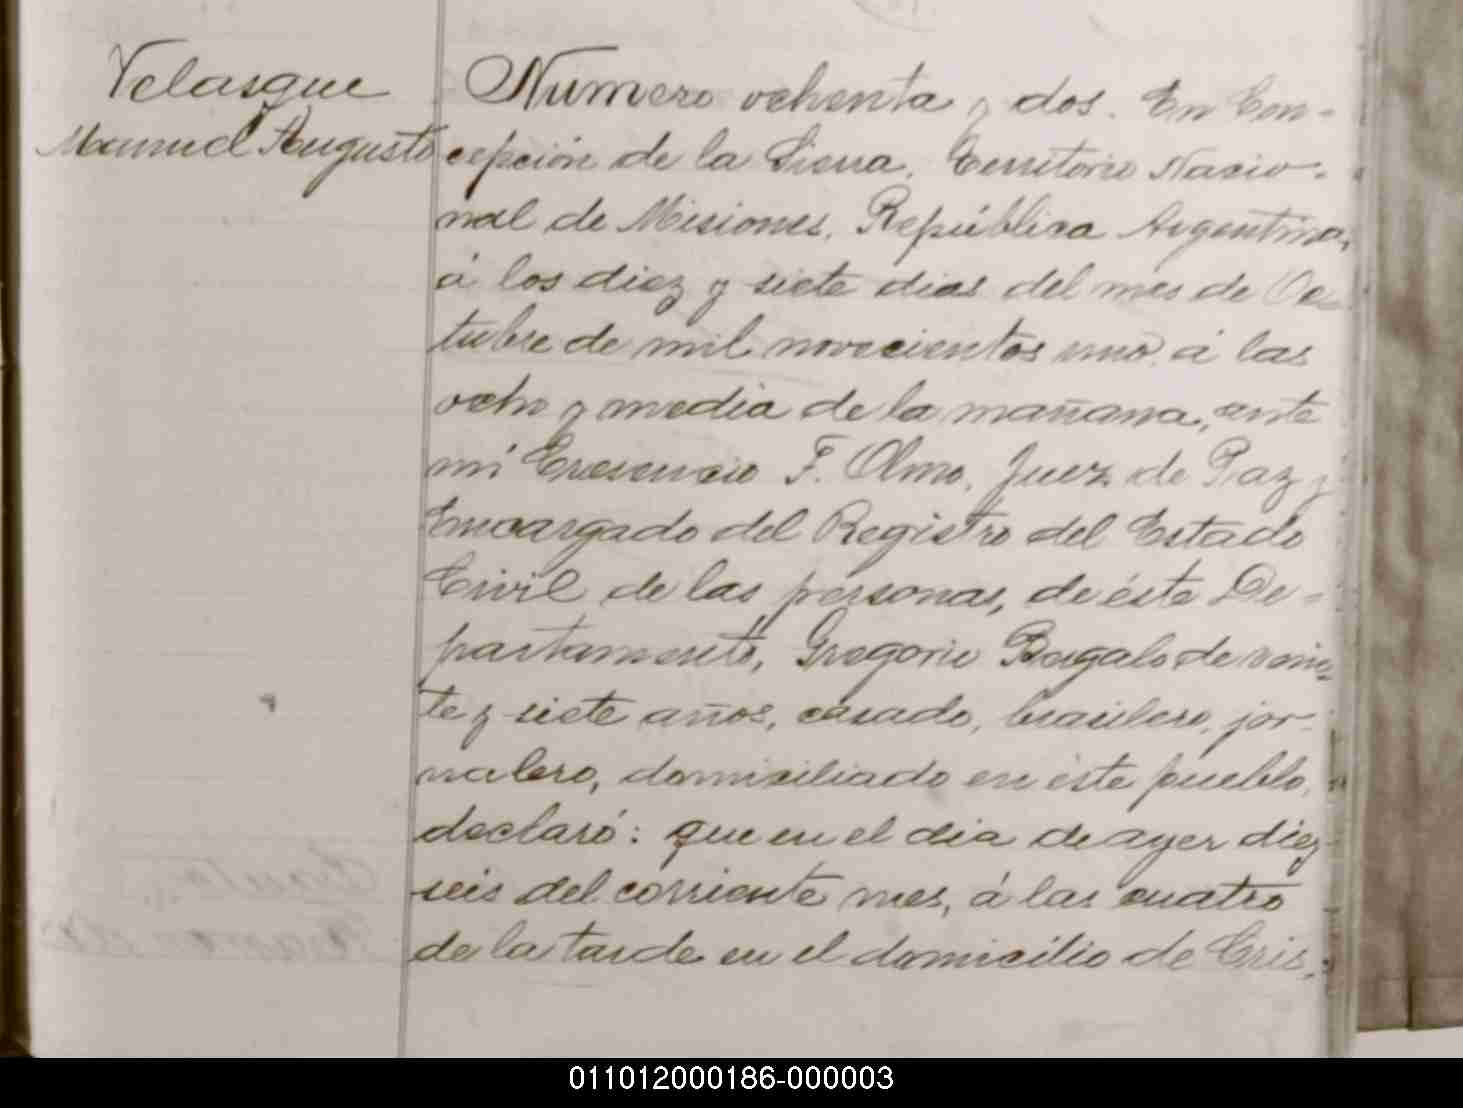 Velasque
Manuel Augusto
Numero ochenta y dos. En Con-
cepción de la Sierra, Territorio Nacio-
nal de Misiones, República Argentina,
á los diez y siete dias del mes de Oc-
tubre de mil novecientos uno, á las
ocho y media de la mañana, ante
mi Cresencio F. Olmo, Juez de Paz y
Encargado del Registro del Estado
Civil de las personas, de éste De-
partamento, Gregorio de vein-
te y siete años, casado, brasilero, jor-
nalero, domiciliado en éste pueblo,
declaró: que en el dia de ayer diez
seis del corriente mes, á las cuatro
de la tarde en el domicilio de Cris-
011012000186-000003